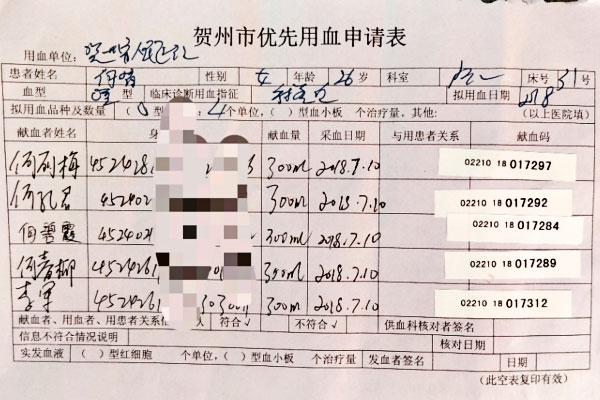 贺州市优先用血申请表
用血单位：
患者姓名 何 性别 女 年龄 26 岁 科室 床号 51号
血型 临床诊断用血指征 拟用血日期 2018
拟用血品种及数量（O 4个单位，（ ）型血小板 个治疗量，其他： （以上医院填）
献血者姓名 身 献血量 采血日期 与用患者关系 献血码
何丽梅 4524281 300ml 2018.7.10 02210 18 017297
何 452402 300ml 2018.7.10 02210 18 017292
何碧霞 452402 300ml 2018.7.10 02210 18 017284
何春柳 45242619 300ml 2018.7.10 02210 18 017289
李军 45242619 300ml 2018.7.10 02210 18 017312
献血者、用血者、用患者关系 人 符合√ 不符合√ 供血科核对者签名
信息不符合情况说明 核对日期
实发血液 （ ）型红细胞 个单位，（ ）型血小板 个治疗量 发血者签名 日期
（此空表复印有效）